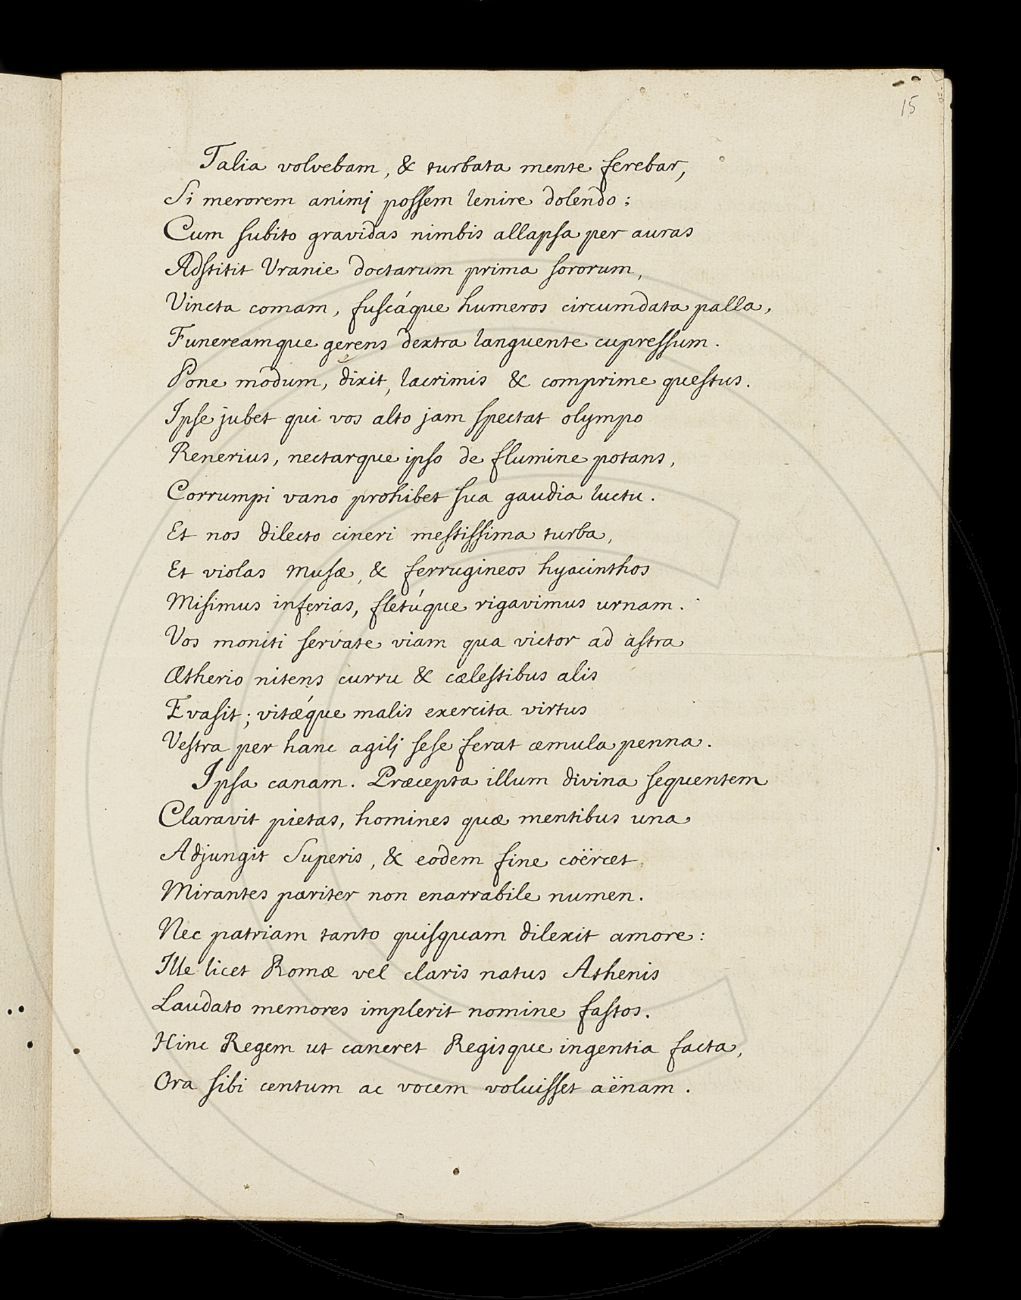 15
Talia volvebam, & turbata mente ferebar,
Si merorem animj possem lenire dolendo:
Cum subito gravidas nimbis allapsa per auras
Adstitit Uranie doctarum prima sororum,
Vincta comam, fuscáque humeros circumdata palla,
Funereamque gerens dextra languente cupressum.
Pone modum, dixit, lacrimis & comprime questus.
Ipse jubet qui vos alto jam spectat olympo
Renerius, nectarque ipso de flumine potans,
Corrumpi vano prohibet sua gaudia luctu.
Et nos dilecto cineri mestissima turba,
Et violas Musæ, & ferrugineos hyacinthos
Misimus inferias, fletúque rigavimus urnam.
Vos moniti servate viam qua victor ad astra
Ætherio nitens curru & cælestibus alis
Evasit; vitæque malis exercita virtus
Vestra per hanc agilj sese ferat æmula penna.
Ipsa canam. Præcepta illum divina sequentem
Claravit pietas, homines quæ mentibus una
Adjungit Superis, & eodem fine coërcet
Mirantes pariter non enarrabile numen.
Nec patriam tanto quisquam dilexit amore:
Ille licet Romæ vel claris natus Athenis
Laudato memores implerit nomine fastos.
Hinc Regem ut caneret Regisque ingentia facta,
Ora sibi centum ac vocem voluisset aënam.